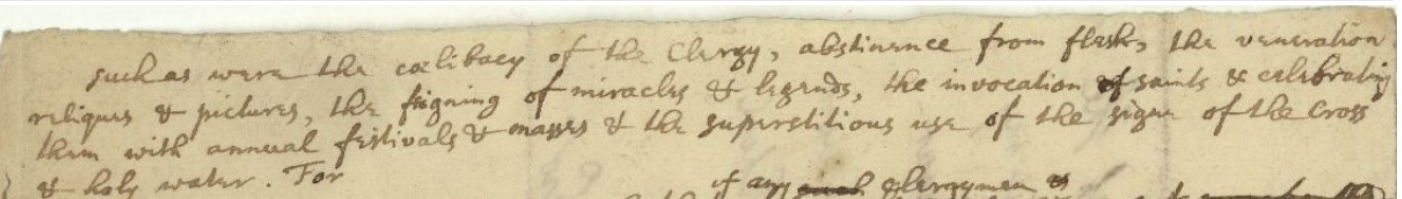 such as were the cœlibacy of the Clergy, abstinence from flesh, the veneration
reliques & pictures, the feigning of miracles & legends, the invocation of saints & celebrating
them with annual festivals & masses & the superstitious use of the signe of the cross
& holy water. For
if any such clergymen &